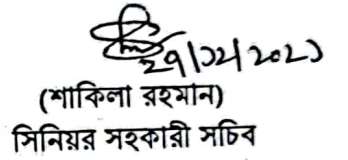 ২৭/১২/২০২১
(শাকিলা রহমান)
সিনিয়র সহকারী সচিব